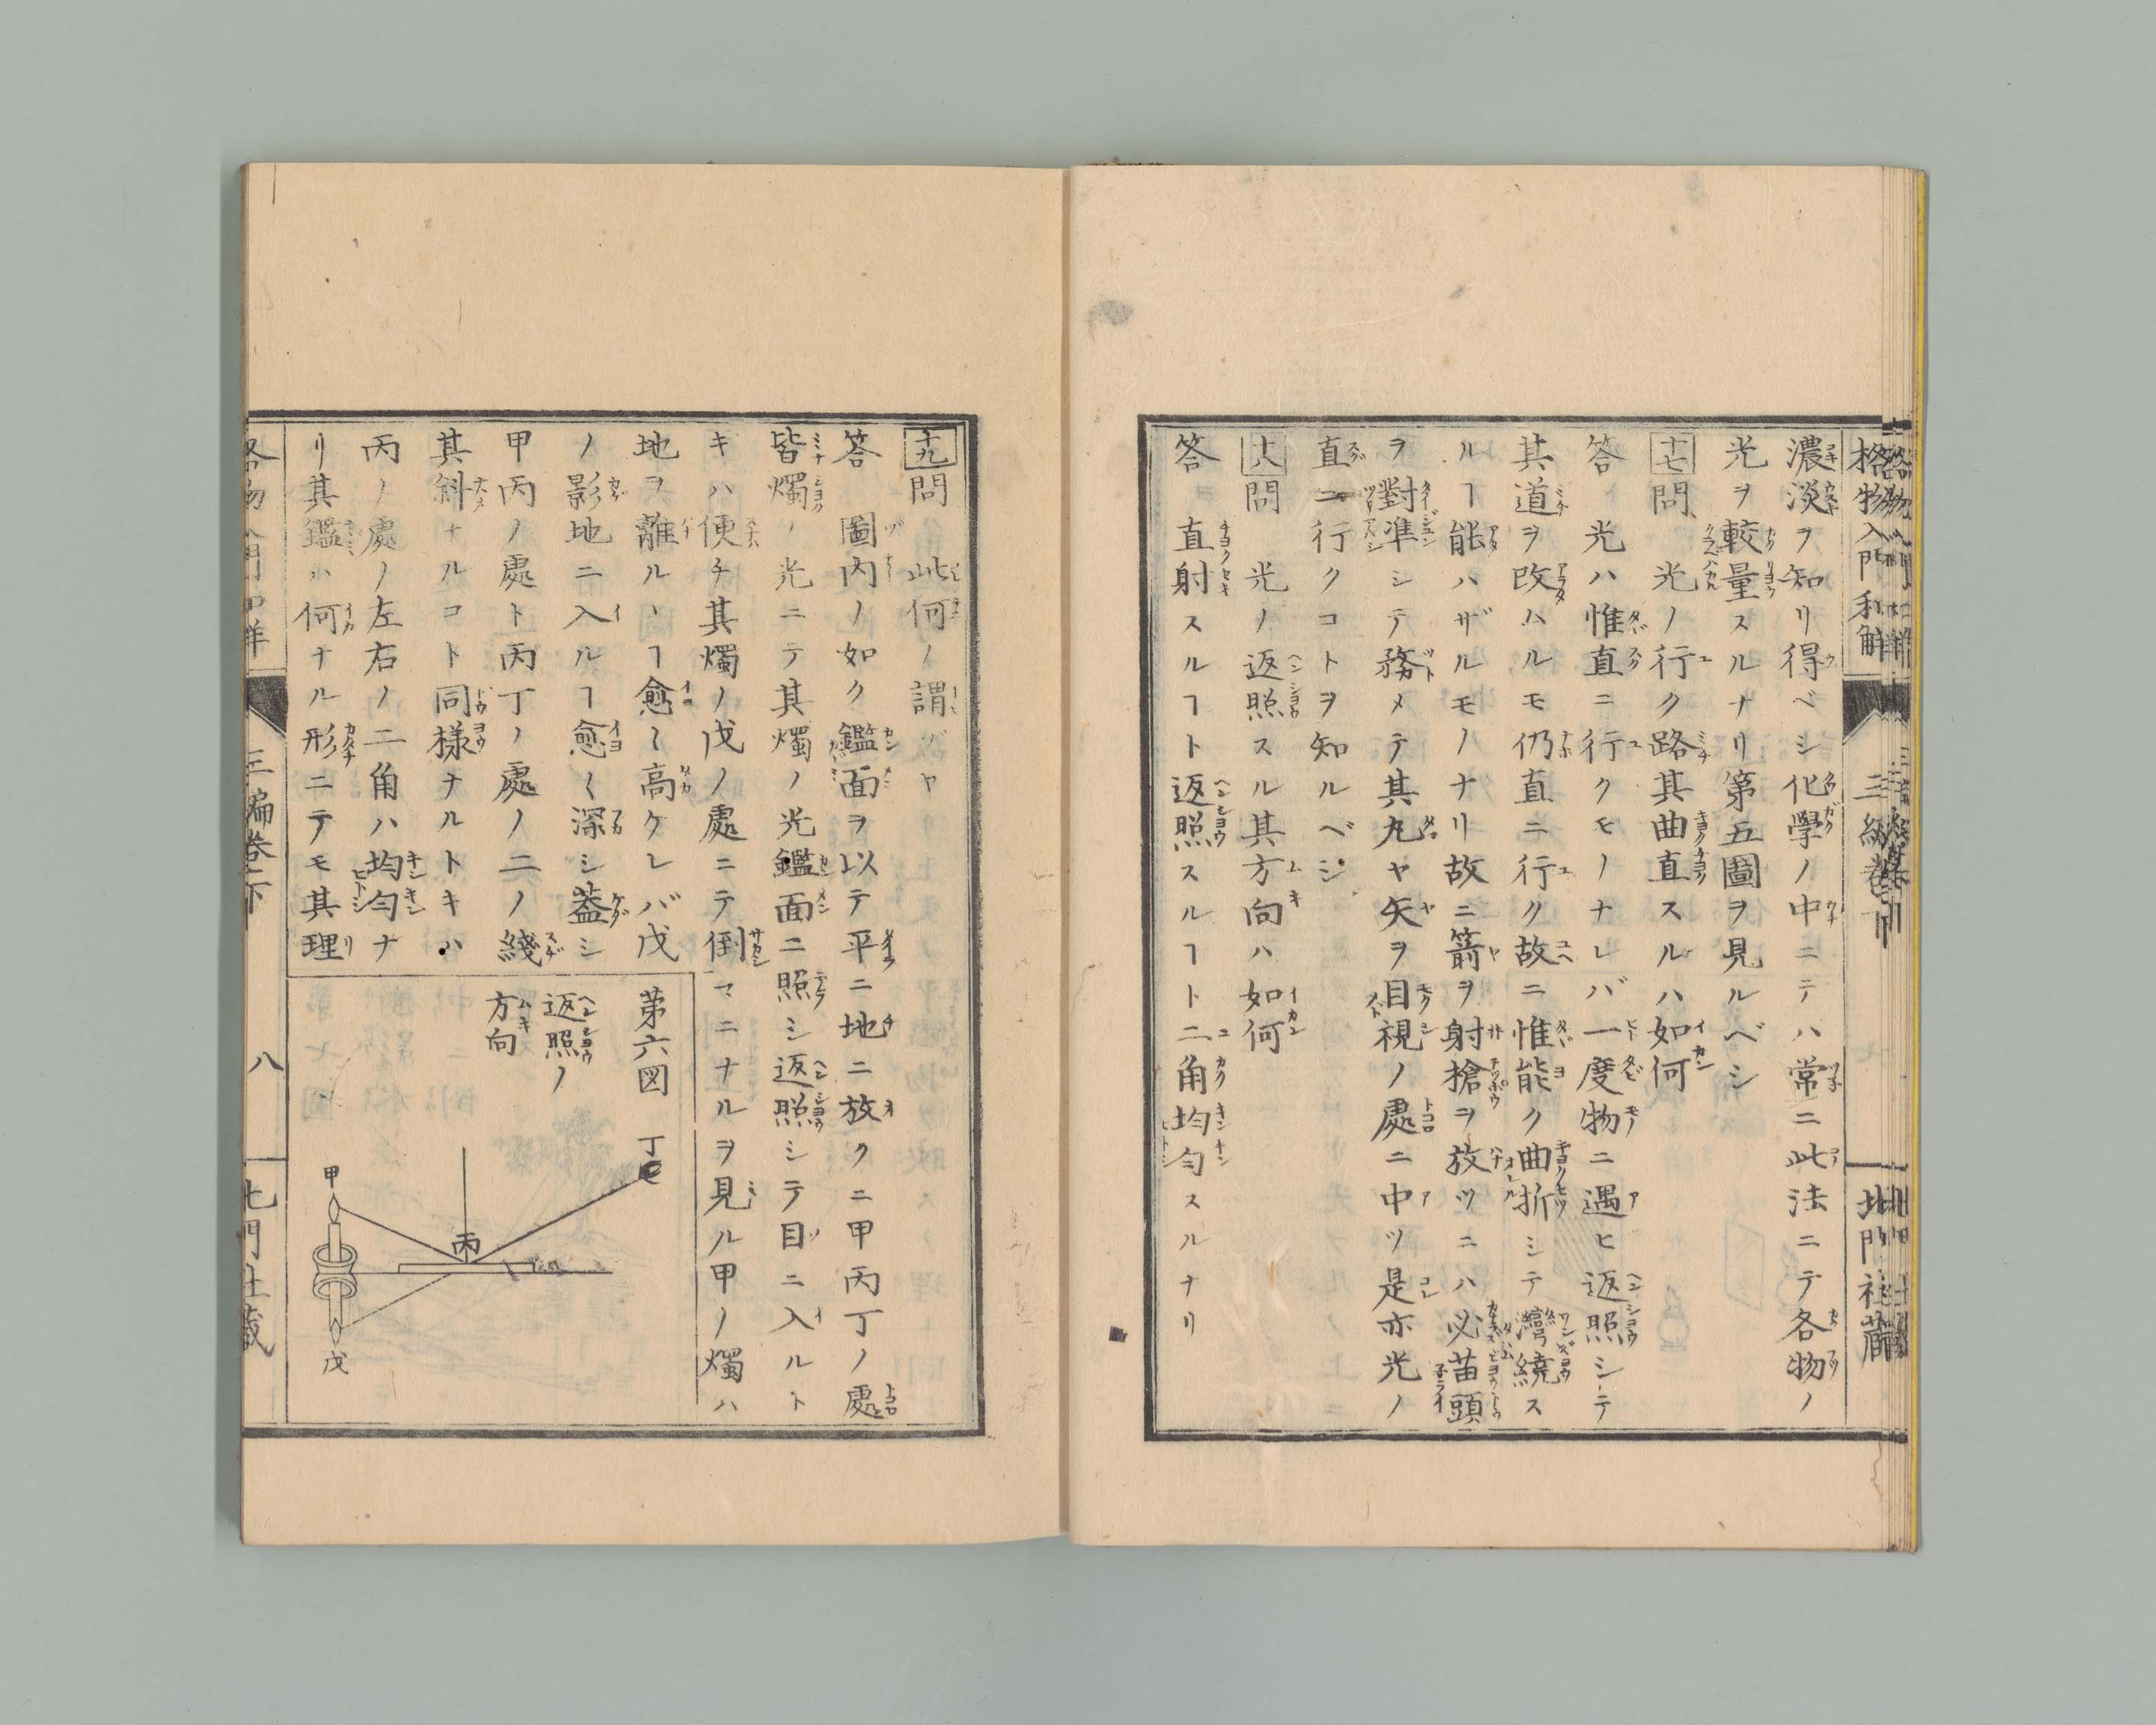 格物入門和解
三編巻下
北門社蔵
濃淡ヲ知リ得ベシ化學ノ中ニテハ常ニ此法ニテ各物ノ
光ヲ較量スルナリ第五圖ヲ見ルベシ
十七問 光ノ行ク路其曲直スルハ如何
答 光ハ惟直ニ行クモノナレバ一度物ニ遇ヒ返照シテ
其道ヲ改ハルモ仍直ニ行ク故ニ惟能ク曲折シテ灣繞ス
ルヿ能ハザルモノナリ故ニ箭ヲ射搶ヲ放ツニハ必苗頭
ヲ對準シテ務メテ其丸ヤ矢ヲ目視ノ處ニ中ツ是亦光ノ
直ニ行クコトヲ知ルベシ
十八問 光ノ返照スル其方向ハ如何
答 直射スルヿト返照スルヿト二角均勻スルナリ
十九問 此何ノ謂ゾヤ
答 圖内ノ如ク鑑面ヲ以テ平ニ地ニ放クニ甲丙丁ノ處
皆燭ノ光ニテ其燭ノ光鑑面ニ照シ返照シテ目ニ入ルト
キハ便チ其燭ノ戊ノ處ニテ倒マニナルヲ見ル甲ノ燭ハ
地ヲ離ルヽヿ愈〻高ケレバ戊
ノ影地ニ入ルヿ愈〻深シ蓋シ
甲丙ノ處ト丙丁ノ處ノ二ノ綫
其斜ナルコト同樣ナルトキハ
丙ノ處ノ左右ノ二角ハ均勻ナ
リ其鑑ハ何ナル形ニテモ其理
第六図
返照ノ
方向
丁
甲
丙
戊
三編巻下
八
北門社蔵